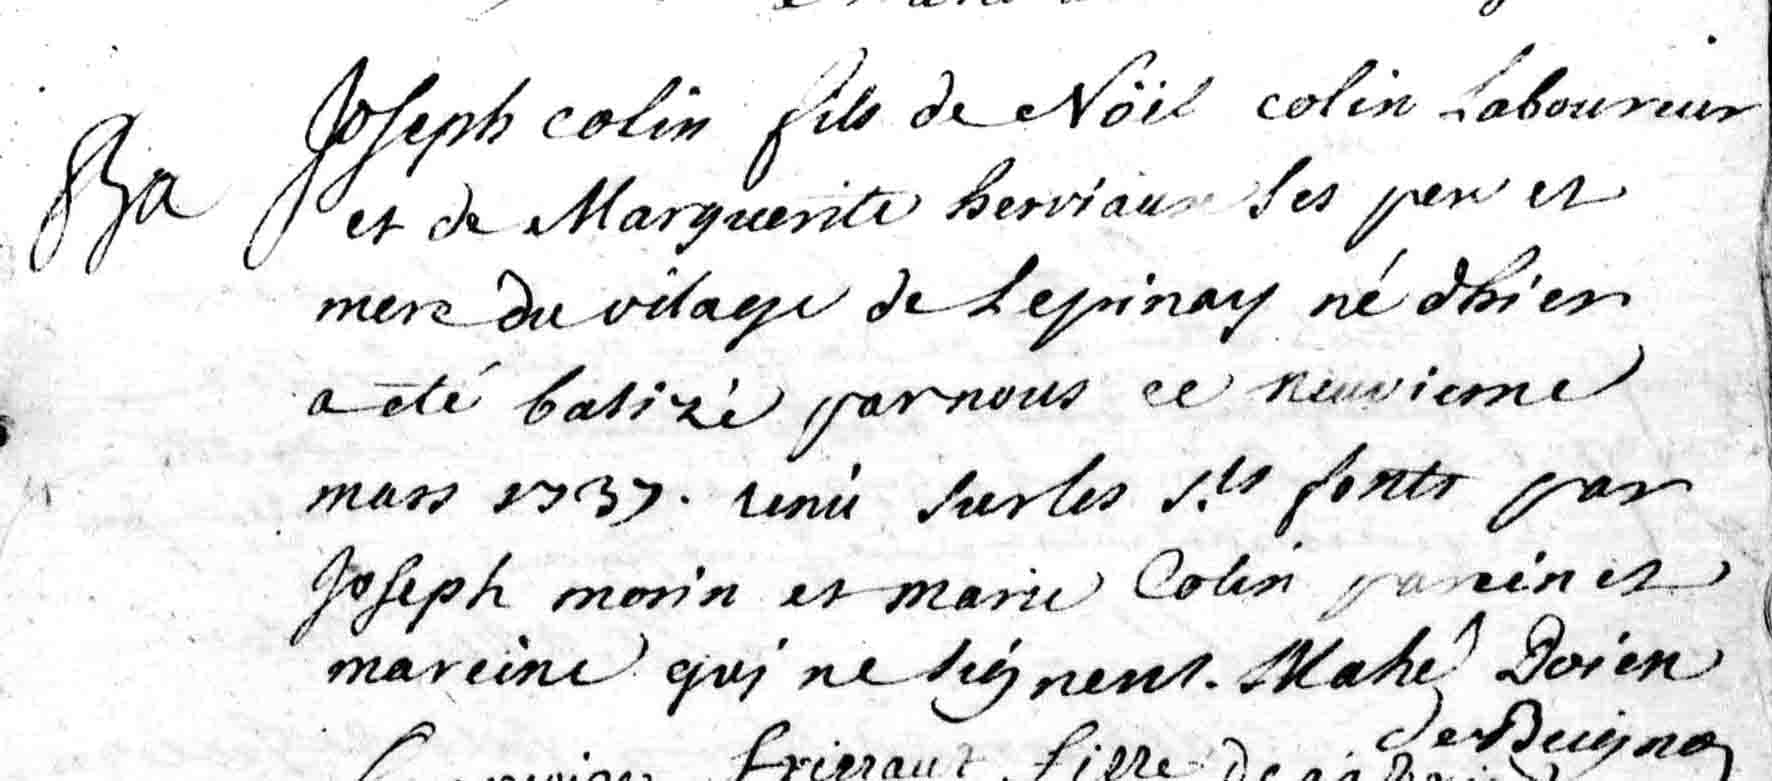 Joseph colin fils de Nöil colin Laboureur
Ba
et de Marguerite herviaux ses pere et
mere du vilage de Lepinay né dhier
a eté batizé par nous ce neuvieme
mars 1737. tenû sur les s.ts fonts par
Joseph morin et marie Colin parein et
mareine qui ne signent. Mahé Doien
de Beignon
fille